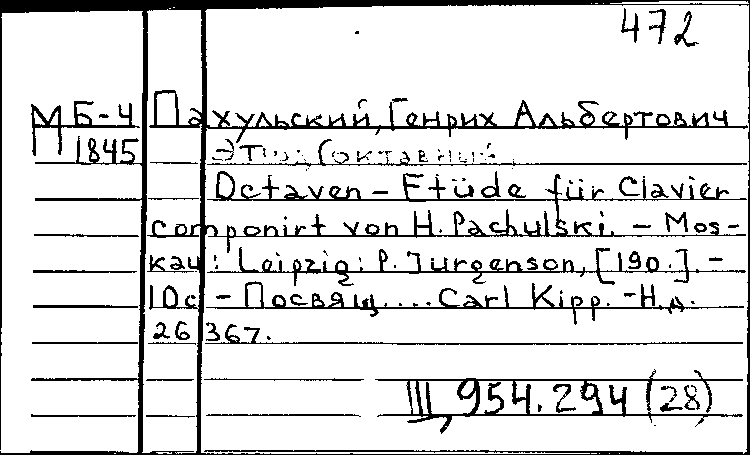 472
МБ-4 Пахульский, Генрих Альбертович
П 1845 Этюд (октавный
Octaven - Etüde für Clavier
componirt von H. Pachulski. - Mos-
кau: Leipzig: P. Jurgenson, [190.]. -
10с - Посвящ.... Carl Kipp. - Н.д.
26 367.
Щ 954.294 (28)